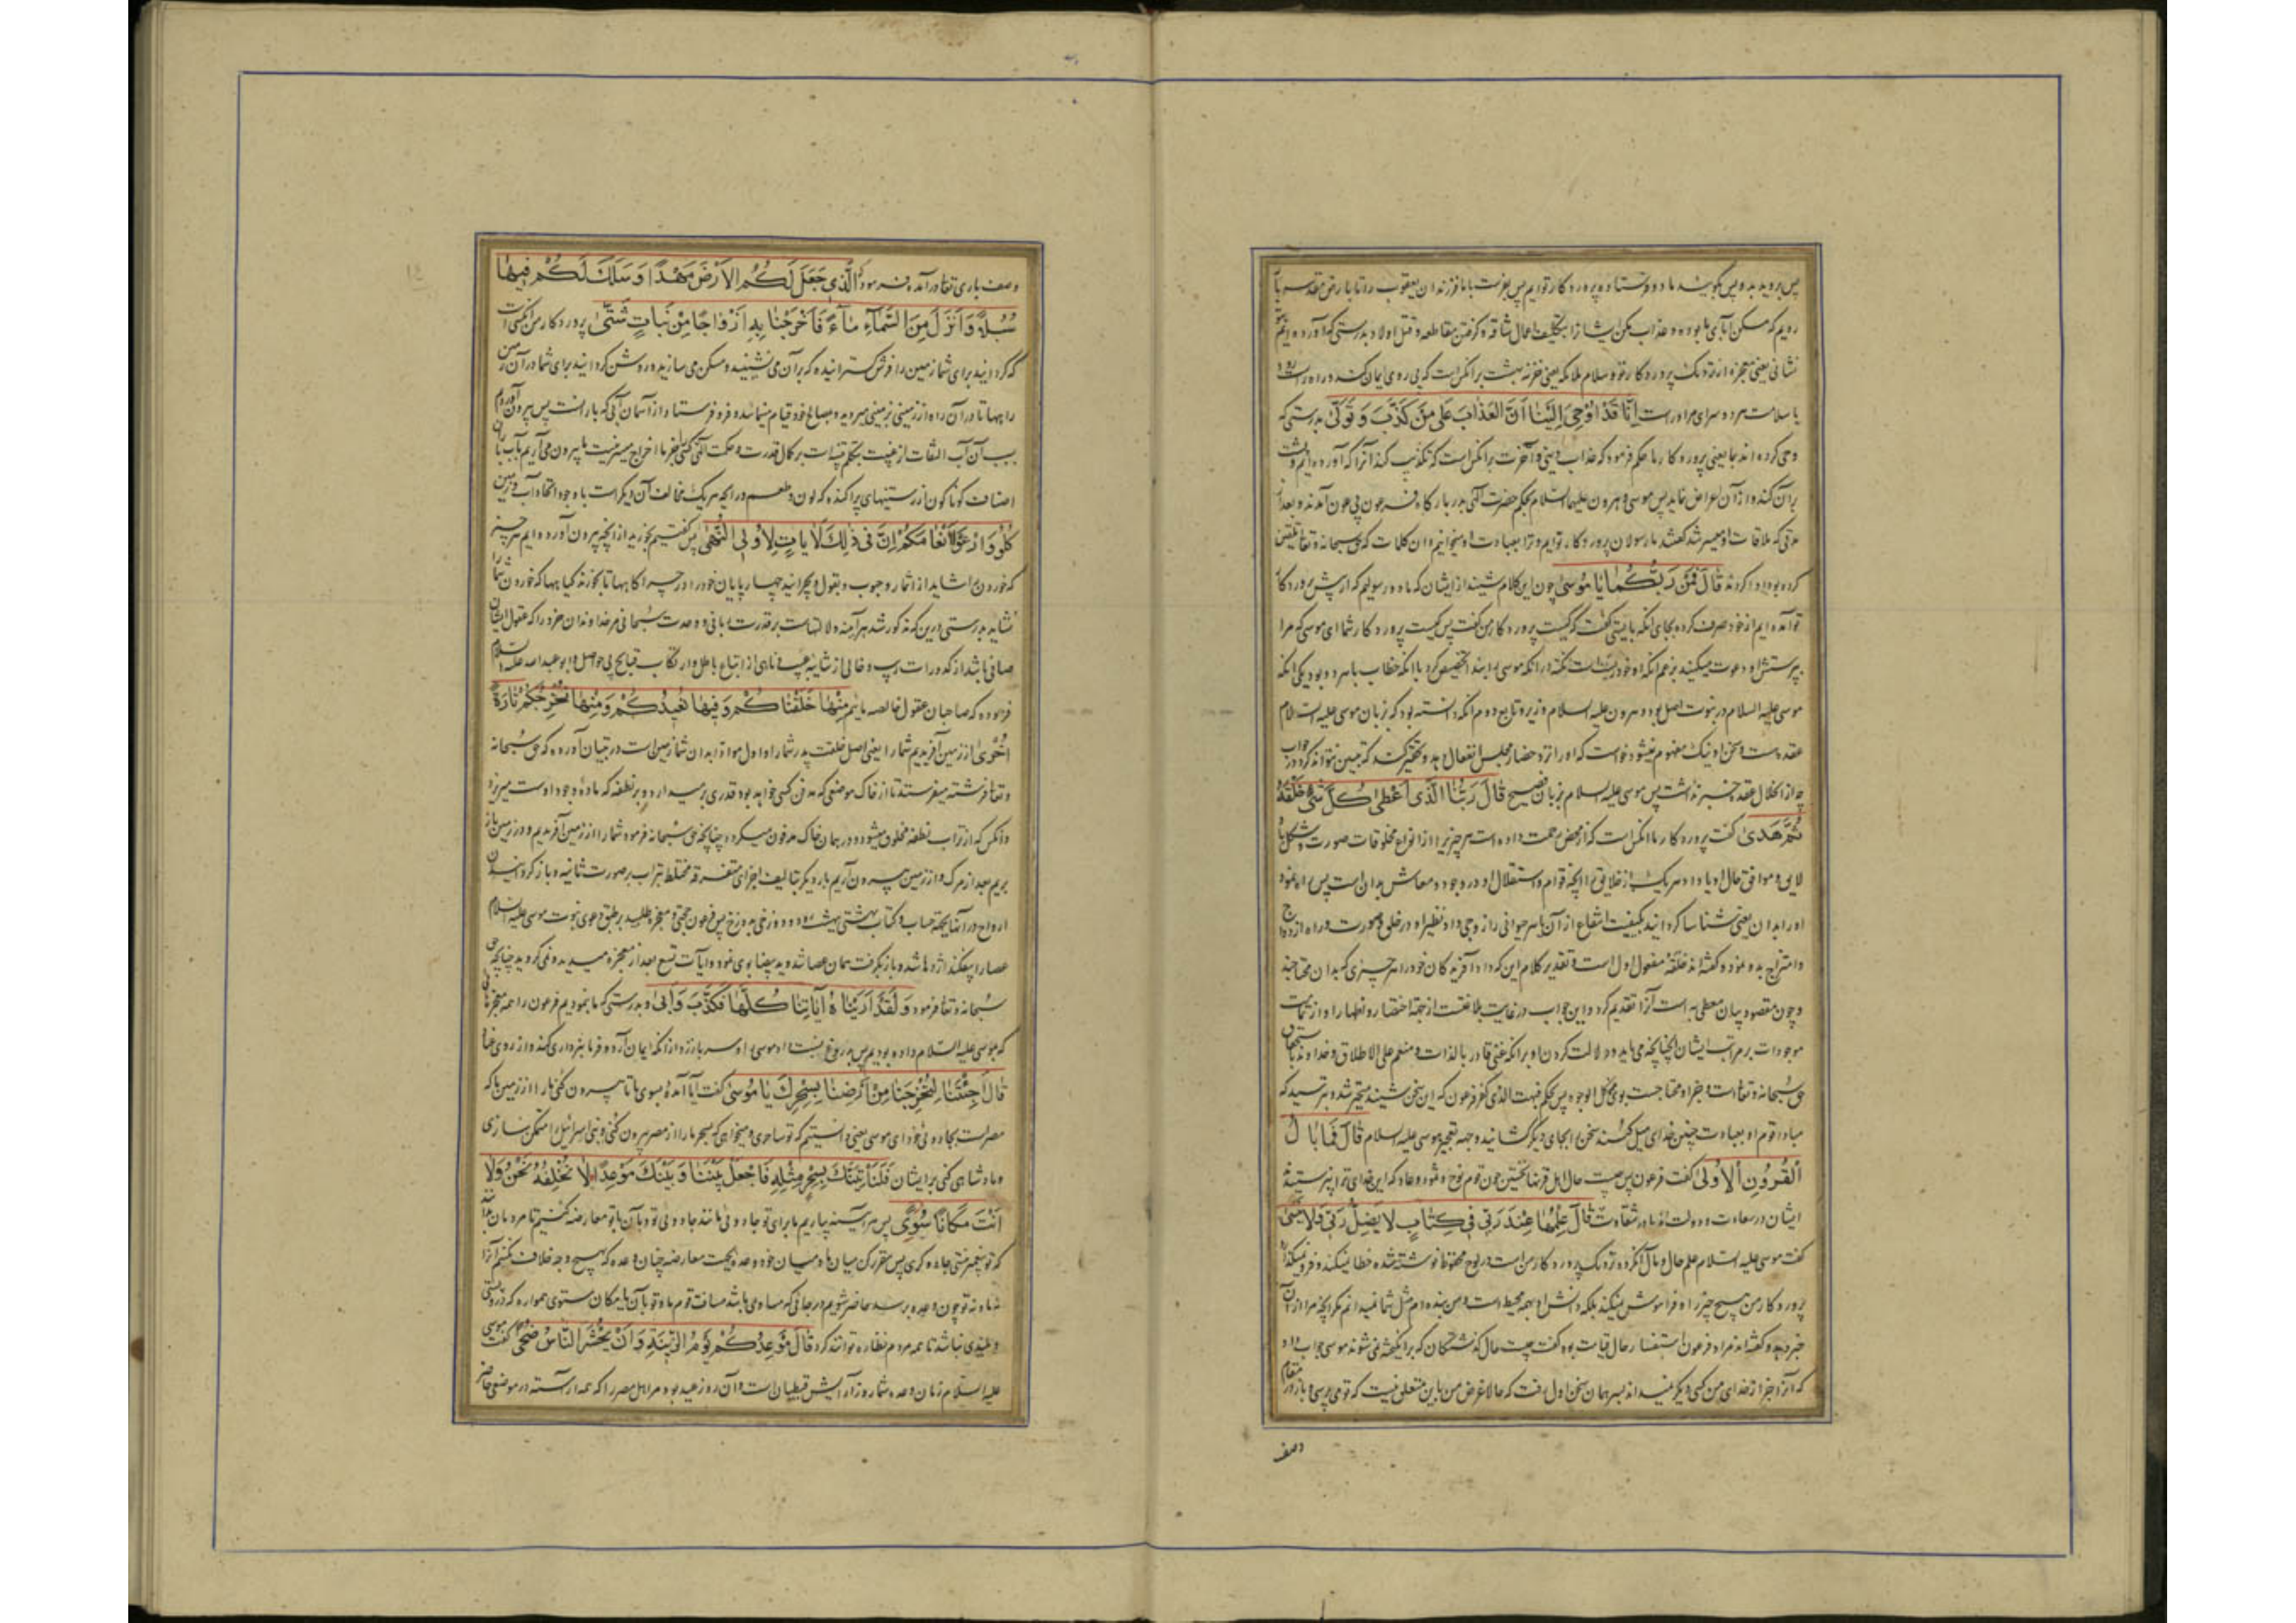 پس بروید بدو پس بگویید ما دو فرستاده پروردگار توایم پس بفرست با ما فرزندان یعقوب را تا بارض مقدسه باز
رویم که مسکن آبای ما بوده و عذاب مکن ایشانرا بتکلیف اعمال شاقه و گرفتن مقاطعه و قتل اولاد بدرستی که آورده ایم بتو
نشانی یعنی معجزه از نزدیک پروردگار تو و سلام ملائکه یعنی خزنه بهشت بر آنکس است که پیروی ایمان کند و راه راست رود
یا سلامت مر دو سرای مر اوراست اِنَّا قَدْ اُوحِيَ اِلَيْنَا اَنَّ الْعَذَابَ عَلٰى مَنْ كَذَّبَ وَتَوَلّٰى بدرستی که
وحی کرده اند بما یعنی پروردگار ما حکم فرموده که عذاب دنیی و آخرت بر آنکس است که تکذیب کند آنرا که آورده ایم و پشت
بر آن کند و از آن اعراض نماید پس موسی و هرون علیهما السلام بحکم حضرت الهی بدربارگاه فرعون پی عون آمدند و بعد از
مدتی که ملاقات او میسر شد گفتند ما رسولان پروردگار توایم و ترا بعبادت او میخوانیم و آن کلمات که حق سبحانه و تعالی تلقین
کرده بود ادا کردند قَالَ فَمَنْ رَبُّكُمَا يَا مُوسٰى چون این کلام شنید از ایشان که ما دو رسولیم که از پیش پروردگار
تو آمده ایم از خود صرف کرده بجای آنکه بایستی گفت که کیست پروردگار من گفت پس کیست پروردگار شما ای موسی که مرا
بپرستش او دعوت میکنید بزعم آنکه او خود ربست
موسی علیه السلام در نبوت اصل بود و هرون علیه السلام وزیر و تابع دوم آنکه دانسته بود که زبان موسی علیه السلام
عقده هست و سخن او نیک مفهوم نمیشود خواست که او را نزد حضار مجلس انفعال دهد
چه از انحلال عقده خبر نداشت پس موسی علیه السلام بزبان فصیح قَالَ رَبُّنَا الَّذِي اَعْطٰى كُلَّ شَيْءٍ خَلْقَهُ
ثُمَّ هَدٰى گفت پروردگار ما آنکس است که از محض رحمت داده است هر چیزیرا از انواع مخلوقات صورت و شکل
لایق و موافق حال او یا داد هر یک از خلایق را آنچه قوام و استقلال او در وجود و معاش بدان است پس راه نمود
او را بدان یعنی شناسا گردانید بکیفیت انتفاع از آن یا هر حیوانی را زوجی داد نظیر او در خلق و صورت و راه ازدواج
و امتزاج بدو نمود و گفته اند خلقه مفعول اول است و تقدیر کلام این که داد آفریدگان خود را هر چیزی که بدان محتاجند
و چون مقصود بیان معطی به است آنرا تقدیم کرد و این جواب در غایت بلاغتست از جهة اختصار
موجودات بر مراتب ایشان چنانچه می باید و دلالت کردن او بر آنکه غنی قادر بالذات و منعم علی الاطلاق و خداوند باستحقاق
حق سبحانه و تعالی است و جز او محتاجست بوی فی کل الوجوه پس بحکم فبهت الذی کفر فرعون که این سخن شنید متحیر شد و بترسید که
مبادا قوم او بعبادت چنین خدای میل کنند سخن را بجای دیگر کشانیده وجه تعجیز موسی علیه السلام قَالَ فَمَا بَالُ
الْقُرُونِ الْاُولٰى گفت فرعون پس چیست حال اهل قرنها نخستین چون قوم نوح و ثمود و عاد که این خدای ترا نپرستیدند
ایشان در سعادت و دولت اند یا در شقاوت قَالَ عِلْمُهَا عِنْدَ رَبِّي فِي كِتَابٍ لَا يَضِلُّ رَبِّي وَلَا يَنْسٰى
گفت موسی علیه السلام علم حال و مآل آن گروه نزدیک پروردگار من است در لوح محفوظ نوشته شده خطا نمیکند و فرو نمیگذارد
پروردگار من هیچ چیز را و فراموش نمیکند بلکه دانش او بهمه محیط است و من بنده ام مثل شما غیب ندانم مگر آنچه مرا از آن
خبر دهد و گفته اند مراد فرعون استفسار حال قیامت بود گفت چیست حال گذشتگان که برانگیخته نمی شوند موسی جواب داد
که آنرا جز از خدای من کسی دیگر نمیداند پس همان سخن اول رفت که حالا غرض من باین متعلق نیست که تو می پرسی و باز در مقام
وصف
وصف باری تعالی درآمده فرمود که الَّذِي جَعَلَ لَكُمُ الْاَرْضَ مَهْدًا وَسَلَكَ لَكُمْ فِيهَا
سُبُلًا وَاَنْزَلَ مِنَ السَّمَاءِ مَاءً فَاَخْرَجْنَا بِهِ اَزْوَاجًا مِنْ نَبَاتٍ شَتّٰى پروردگار من آنکس است
که گردانید برای شما زمین را فرش گسترانیده که بر آن می نشینید و مسکن می سازید و روشن گردانید برای شما در آن زمین
راهها تا در آن راه از زمینی بزمینی میروید و بمصالح خود قیام مینمایید و فرو فرستاد از آسمان آبی که بارانست پس بیرون آوردیم
بسبب آن آب التفات از غیبت بتکلم تنبیه است بر کمال قدرت و حکمت
اصناف گوناگون از رستنیهای پراکنده که لون و طعم و رایحه هر یک مخالف آن دیگر است با وجود اتحاد آب و زمین
كُلُوا وَارْعَوْا اَنْعَامَكُمْ اِنَّ فِي ذٰلِكَ لَاٰيَاتٍ لِاُولِي النُّهٰى پس گفتیم بخورید از آنچه بیرون آورده ایم هر چیز
که خوردن را شاید از اثمار و حبوب و بقول و بچرانید چهارپایان خود را در چراگاهها تا بخورند گیاهها که خوردن شما را
نشاید بدرستی درین که مذکور شد هر آینه دلالتهاست بر قدرت ربانی و وحدت سبحانی مر خداوندان خرد را که عقول ایشان
صافی باشد از کدورات ریب و خالی از شائبه عیب و ناهی از اتباع باطل و ارتکاب قبایح بی حواصل و ابو عبدالله علیه السلام
فرموده که صاحبان عقول خالصه ماییم مِنْهَا خَلَقْنَاكُمْ وَفِيهَا نُعِيدُكُمْ وَمِنْهَا نُخْرِجُكُمْ تَارَةً
اُخْرٰى از زمین آفریدیم شما را یعنی اصل خلقت پدر شما و اول مواد ابدان شما زمین است در تبیان آورده که حق سبحانه
و تعالی فرشته میفرستد تا از خاک موضعی که مدفن کسی خواهد بود قدری بر میدارد و بر نطفه که ماده وجود اوست میریزد
و آنکس که از تراب نطفه مخلوق میشود و در همان خاک مدفون میگردد چنانچه حق سبحانه فرمود شما را از زمین آفریدیم و در زمین باز
بریم بعد از مرگ و از زمین بیرون آریم بار دیگر بتالیف اجزای متفرقه مختلط بتراب بر صورت ثانیه و باز گردانیدن
ارواح در آنها بجهة حساب و کتاب بهشتی به بهشت رود و دوزخی بدوزخ پس فرعون حجتی و معجزه طلبید بر طبق دعوی نبوت موسی علیه السلام
عصا را بیفکند اژدها شد و باز بگرفت همان عصا شد و ید بیضا بوی نمود و آیات تسع بعد از معجزه میدید و نمی گروید چنانچه حق
سبحانه و تعالی فرمود وَلَقَدْ اَرَيْنَاهُ اٰيَاتِنَا كُلَّهَا فَكَذَّبَ وَاَبٰى و بدرستی که ما نمودیم فرعون را همه معجزها
که بموسی علیه السلام داده بودیم پس بدروغ نسبت داد موسی را و سر باز زد از آنکه ایمان آرد و فرمانبرداری کند و از روی عناد
قَالَ اَجِئْتَنَا لِتُخْرِجَنَا مِنْ اَرْضِنَا بِسِحْرِكَ يَا مُوسٰى گفت آیا آمده بسوی ما تا بیرون کنی ما را از زمین ما که
مصر است بجادوئی خود ای موسی یعنی دانستیم که تو ساحری و میخواهی که بسحر ما را از مصر بیرون کنی و بنی اسرائیل را متمکن سازی
و پادشاهی کنی بر ایشان فَلَنَأْتِيَنَّكَ بِسِحْرٍ مِثْلِهِ فَاجْعَلْ بَيْنَنَا وَبَيْنَكَ مَوْعِدًا لَا نُخْلِفُهُ نَحْنُ وَلَا
اَنْتَ مَكَانًا سُوًى پس هر آینه بیاریم ما برای تو جادوئی مانند جادوئی تو و بآن با تو معارضه کنیم تا مردمان بدانند
که تو پیغمبر نیستی جادوگری پس مقرر کن میان ما و میان خود وعده بجهت معارضه چنان وعده که بهیچ وجه خلاف نکنیم آنرا
نه ما و نه تو چون وعده برسد حاضر شویم در جائی که مساوی باشد مسافت قوم ما و تو بآن یا مکان مستوی هموار که درو پستی
و بلندی نباشد تا همه مردم نظاره توانند کرد قَالَ مَوْعِدُكُمْ يَوْمُ الزِّينَةِ وَاَنْ يُحْشَرَ النَّاسُ ضُحًى گفت موسی
علیه السلام زمان وعده شما روز آرایش قبطیان است و آن روز عید بوده مر اهل مصر را که همه آراسته در موضعی حاضر